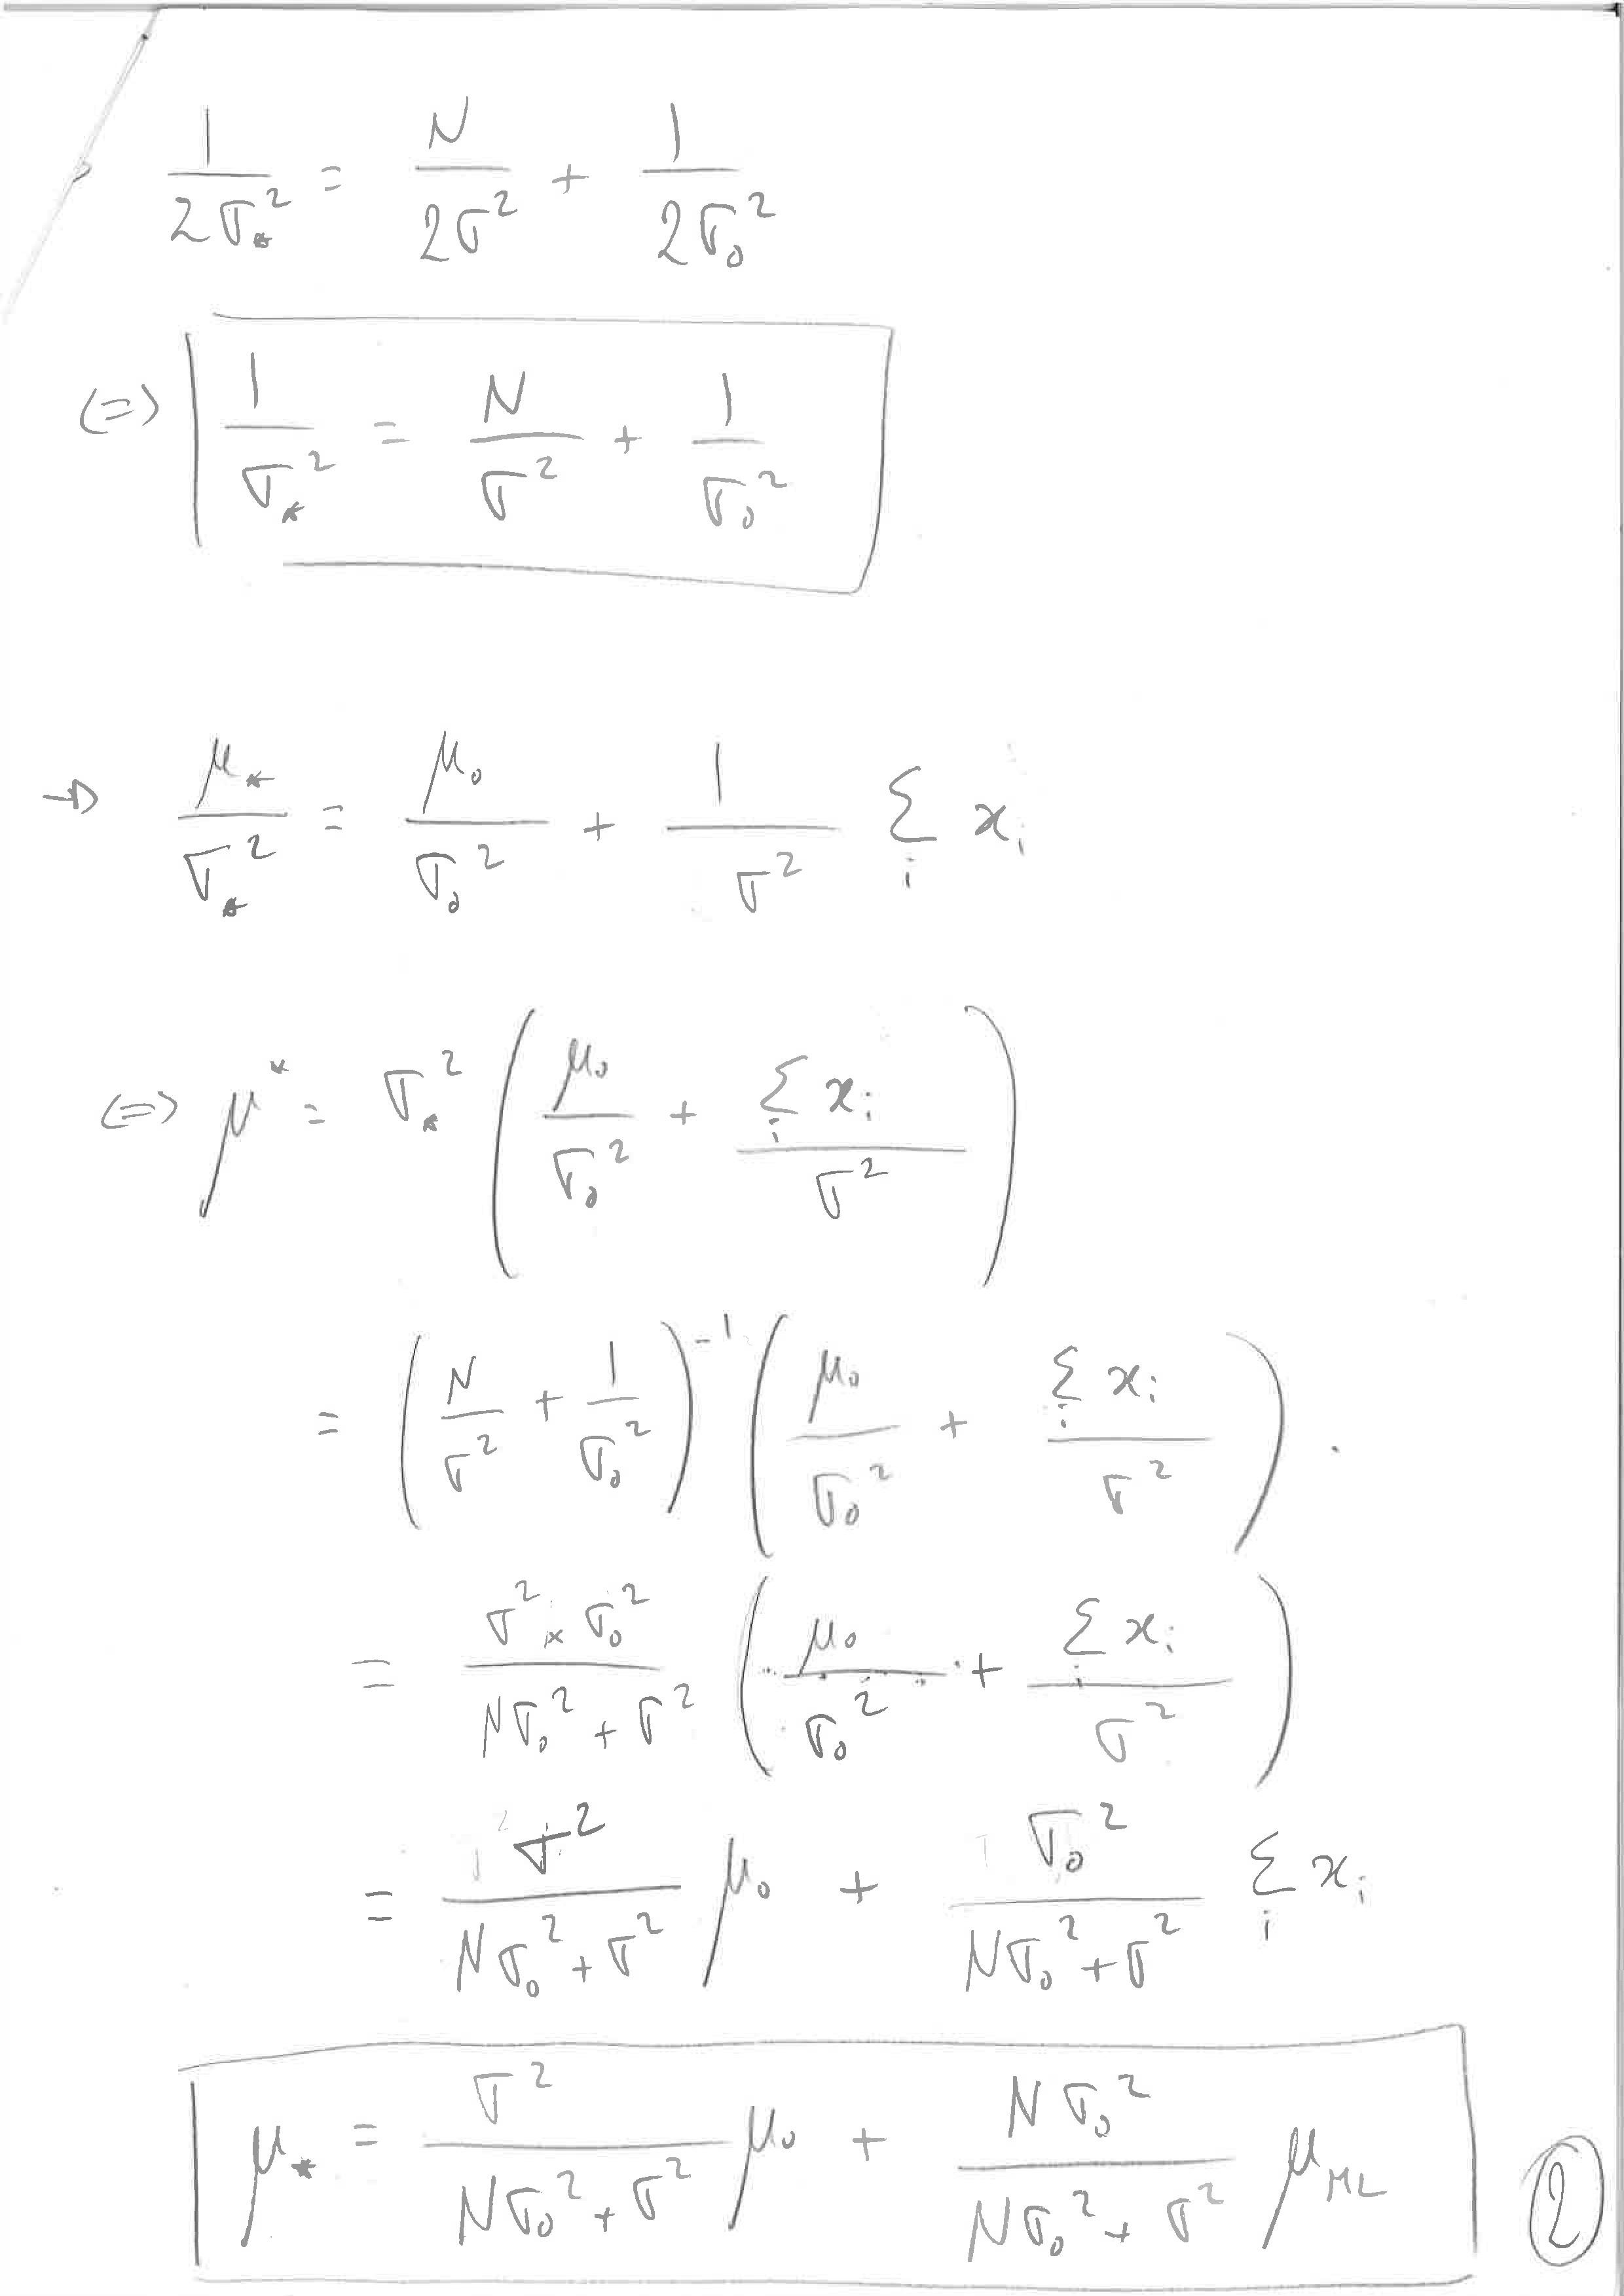 → 1/(2σ_*²) = N/(2σ²) + 1/(2σ₀²)
(=) 1/σ_*² = N/σ² + 1/σ₀²
→ μ_*/σ_*² = μ₀/σ₀² + 1/σ² Σ_i x_i
(=) μ^* = σ_*² ( μ₀/σ₀² + Σ_i x_i/σ² )
= ( N/σ² + 1/σ₀² )⁻¹ ( μ₀/σ₀² + Σ_i x_i/σ² ) .
= (σ² × σ₀²)/(Nσ₀² + σ²) ( μ₀/σ₀² + Σ_i x_i/σ² )
= σ²/(Nσ₀² + σ²) μ₀ + σ₀²/(Nσ₀² + σ²) Σ_i x_i
μ_* = σ²/(Nσ₀² + σ²) μ₀ + Nσ₀²/(Nσ₀² + σ²) μ_ML
2